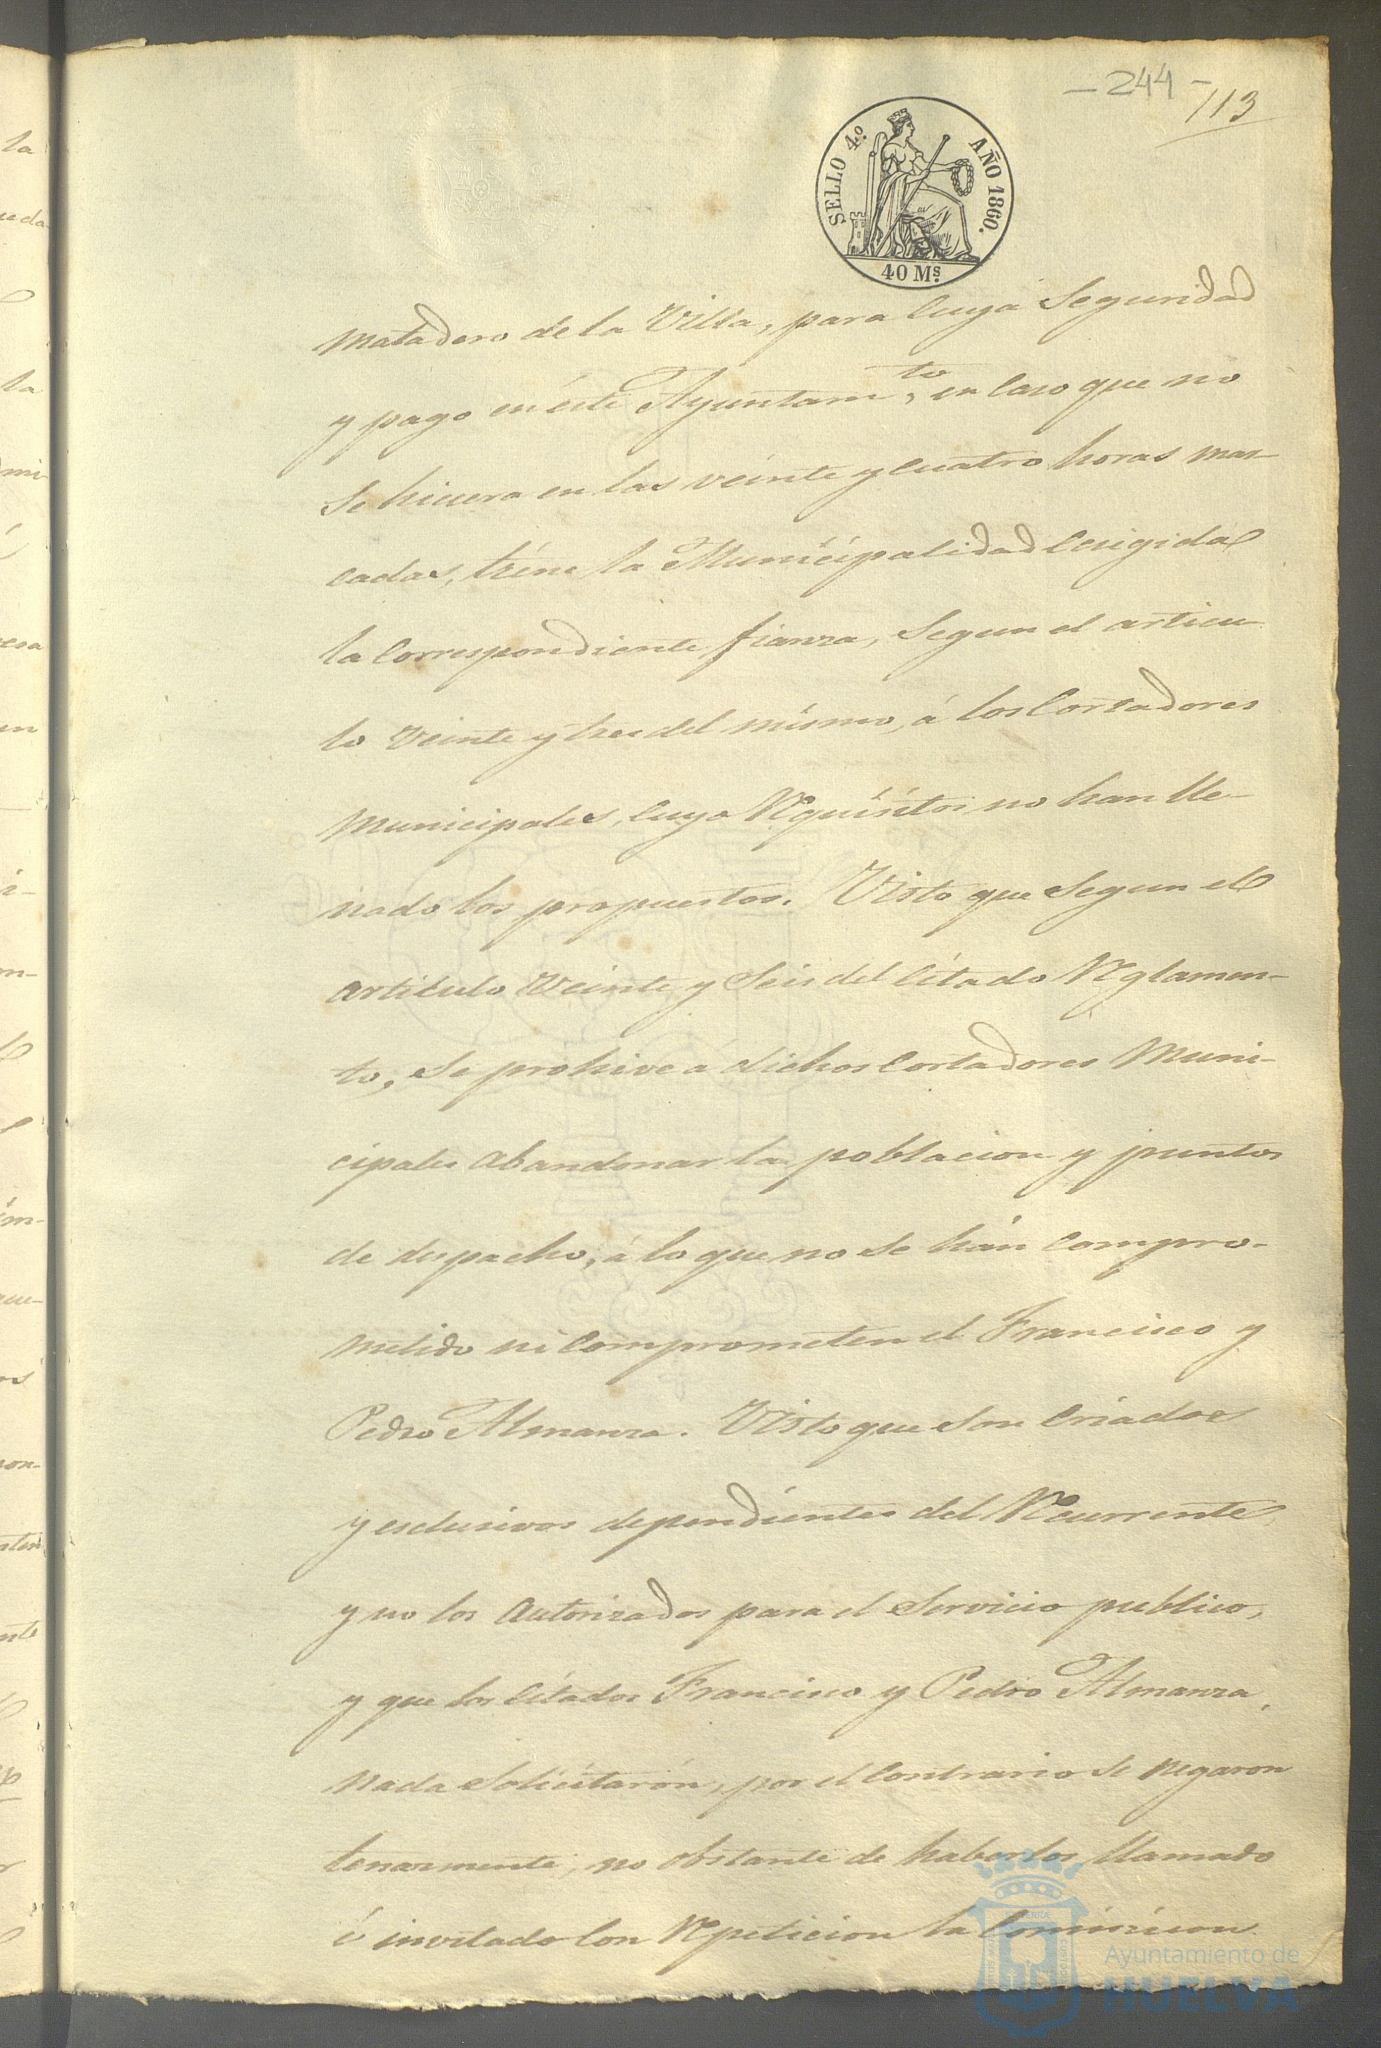 - 244 -
113
SELLO 4º. AÑO 1860.
40 Ms.
matadero de la Villa, para cuya Seguridad
y pago en éste Ayuntamto, en caso que no
se hiciera en las veinte y cuatro horas mar-
cadas, tiene la Municipalidad exigida
la correspondiente fianza, Segun el articu
lo veinte y tres del mismo, á los Cortadores
Municipales, cuyo Requisitos no han lle-
nado los propuestos. Visto que Segun el
articulo Veinte y Seis del citado Reglamen-
to, Se prohive a dichos Cortadores Muni-
cipales abandonar la poblacion y puntos
de despacho, á lo que no se hán compro-
metido ni comprometen el Francisco y
Pedro Almanza. Visto que son Criados
y esclusivos dependientes del Recurrente,
y no los autorizados para el Servicio publico,
y que los citados Francisco y Pedro Almanza,
nada Solicitarón, por el contrario se negaron
tenazmente, no obstante de haberlos llamado
é invitado con Repeticion la Comision
Ayuntamiento de
HUELVA